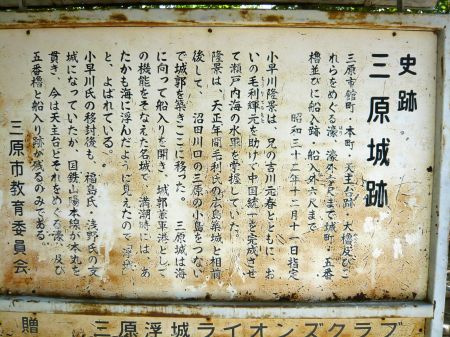 史跡
三原城跡
三原市館町・本町・天主台跡・大櫓及びこ
れらをめぐる濠・濠外九尺まで城町・五番
櫓並びに船入跡・船入外六尺まで
昭和三十二年十二月十八日指定
小早川隆景は、兄の吉川元春とともに、お
いの毛利輝元を助けて中国統一を完成させ
て瀬戸内海の水軍を掌握していた。
隆景は、天正年間毛利氏の広島築城と相前
後して、沼田川口の三原の小島をつない
で城郭を築きここに移った。 三原城は海
に向って船入りを開き、城郭兼軍港として
の機能をそなえた名城で、満潮時には、あ
たかも海に浮んだように見えたので「浮城」
と、よばれている。
小早川氏の移封後も、福島氏・浅野氏の支
城になっていたが、国鉄山陽本線が本丸を
貫き、今は天主台とそれをめぐる濠、及び
五番櫓と船入り跡が残るのみである。
三原市教育委員会
贈 三原浮城ライオンズクラブ